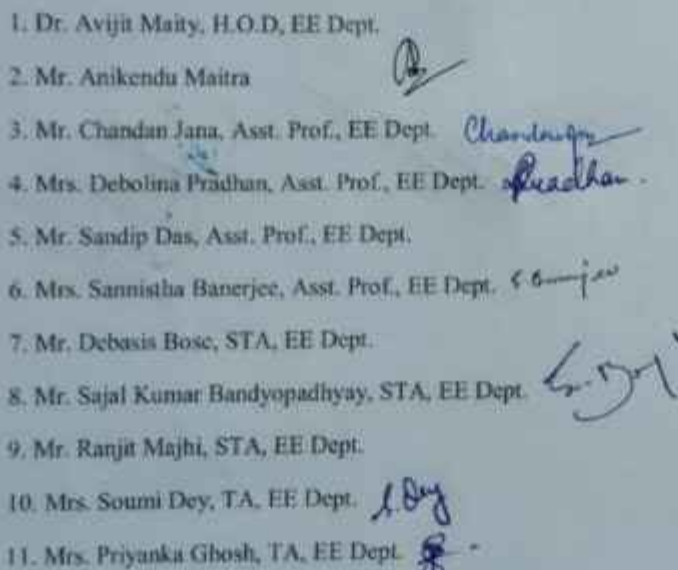 1. Dr. Avijit Maity, H.O.D, EE Dept.
2. Mr. Anikendu Maitra
3. Mr. Chandan Jana, Asst. Prof., EE Dept.
4. Mrs. Debolina Pradhan, Asst. Prof., EE Dept. Pradhan.
5. Mr. Sandip Das, Asst. Prof., EE Dept.
6. Mrs. Sannistha Banerjee, Asst. Prof., EE Dept.
7. Mr. Debasis Bose, STA, EE Dept.
8. Mr. Sajal Kumar Bandyopadhyay, STA, EE Dept.
9. Mr. Ranjit Majhi, STA, EE Dept.
10. Mrs. Soumi Dey, TA, EE Dept. S Dey
11. Mrs. Priyanka Ghosh, TA, EE Dept.